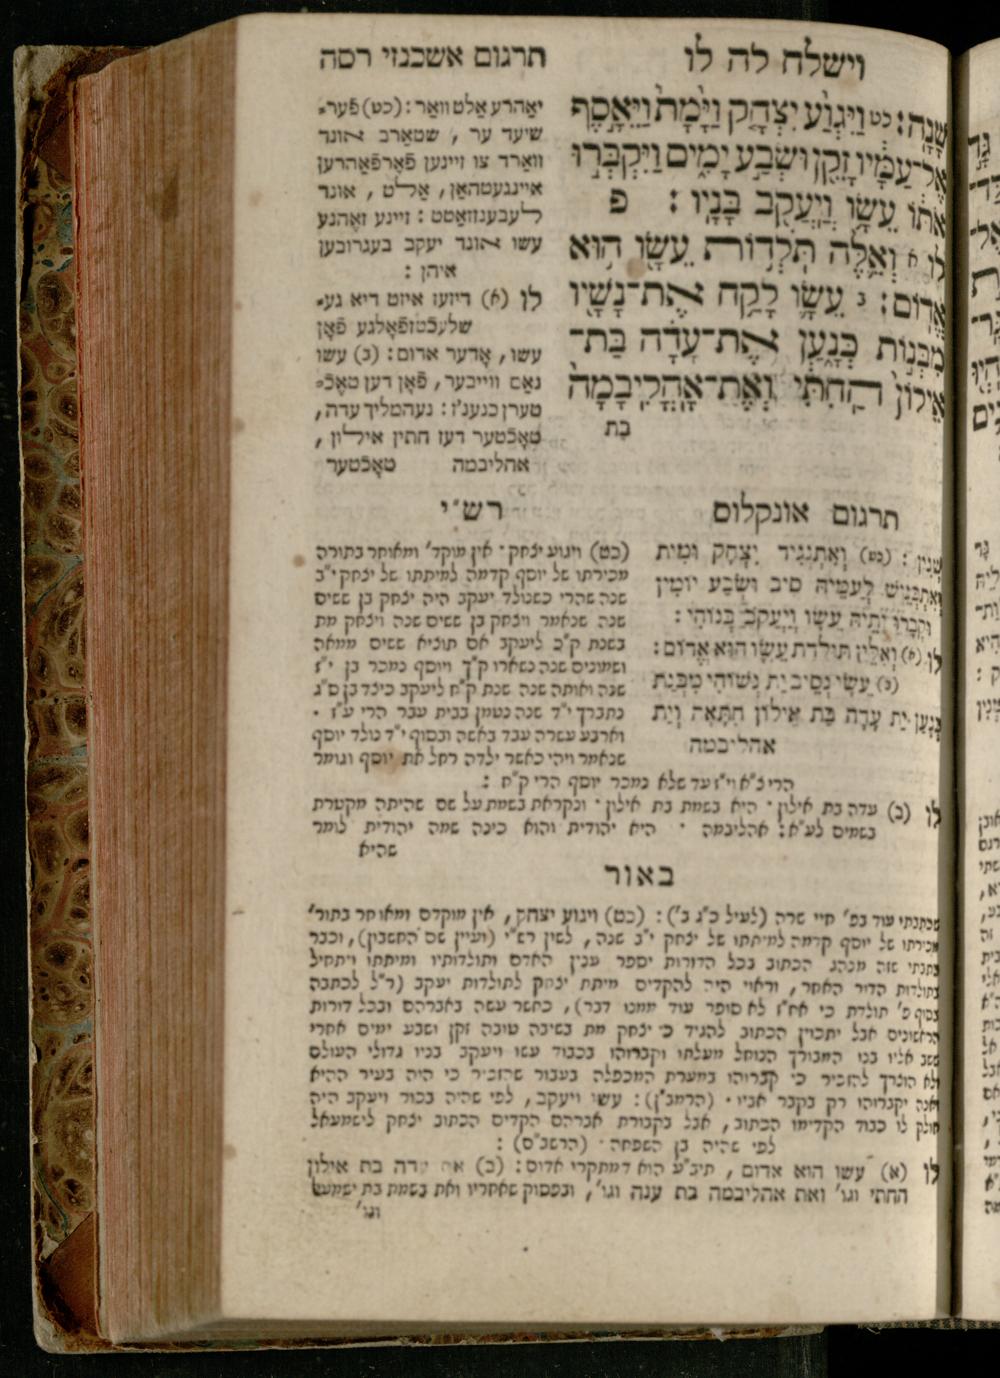 וישלח לה לו
תרגום אשכנזי רסה
שָׁנָה׃ כט וַיִּגְוַע יִצְחָק וַיָּמָת וַיֵּאָסֶף
אֶל־עַמָּיו זָקֵן וּשְׂבַע יָמִים וַיִּקְבְּרוּ
אֹתוֹ עֵשָׂו וְיַעֲקֹב בָּנָיו׃ פ
לו א וְאֵלֶּה תֹּלְדוֹת עֵשָׂו הוּא
אֱדוֹם׃ ב עֵשָׂו לָקַח אֶת־נָשָׁיו
מִבְּנוֹת כְּנָעַן אֶת־עָדָה בַּת־
אֵילוֹן הַחִתִּי וְאֶת־אָהֳלִיבָמָה
בת
יאָהרע אַלט וואַר: (כט) פֿער־
שיעד ער, שטארב אונד
וואַרד צו זיינען פֿאָרפֿאָהרען
איינגעטהאָן, אַלט, אונד
לעבענזזאַטט: זיינע זאָהנע
עשו אונד יעקב בעגרובען
איהן:
לו (א) דיזעז איזט דיא געי
שלעכֿטזפֿאָלגע פֿאָן
עשו, אָדער אדום: (ב) עשו
נאַם ווייבער, פֿאָן דען טאָכֿ־
טערן כנען'ז: נעהמליך עדה,
טאָכֿטער דעז חתין אילון,
אהליבמה טאָכֿטער
תרגום אונקלוס
שְׁנִין: (כט) וְאִתְנְגִיד יִצְחָק וּמִית
וְאִתְכְּנֵישׁ לְעַמֵּיהּ סִיב וּשְׂבַע יוֹמִין
וּקְבָרוּ יָתֵיהּ עֵשָׂו וְיַעֲקֹב בְּנוֹהִי:
לו (א) וְאִלֵּין תּוּלְדַת עֵשָׂו הוּא אֱדוֹם:
(ב) עֵשָׂו נְסֵיב יַת נְשׁוֹהִי מִבְּנַת
כְּנָעַן יַת עָדָה בַּת אֵילוֹן חִתָּאָה וְיַת
אהליבמה
רש"י
(כט) ויגוע יצחק · אין מוקד' ומאוחר בתורה
מכירתו של יוסף קדמה למיתתו של יצחק י"ב
שנה שהרי כשנולד יעקב היה יצחק בן ששים
שנה שנאמר ויצחק בן ששים שנה ויצחק מת
בשנת ק"כ ליעקב אם תוציא ששים ממאה
ושמונים שנה נשארו ק"ך ויוסף נמכר בן י"ז
שנה ואותה שנה שנת ק"ח ליעקב כיצד בן ס"ג
נתברך י"ד שנה נטמן בבית עבר הרי ע"ז ·
וארבע עשרה עבד באשה ובסוף י"ד נולד יוסף
שנאמר ויהי כאשר ילדה רחל את יוסף וגומר
הרי צ"א וי"ז עד שלא נמכר יוסף הרי ק"ח :
לו (ב) עדה בת אילון · היא בשמת בת אילון · ונקראת בשמת על שם שהיתה מקטרת
בשמים לע"א: אהליבמה · היא יהודית והוא כינה שמה יהודית לומר
שהיא
באור
שכתבתי עוד בפ' חיי שרה (לעיל כ"ג ב'): (כט) ויגוע יצחק, אין מוקדם ומאוחר בתור'
מכירתו של יוסף קדמה למיתתו של יצחק י"ב שנה, לשון רש"י (ועיין שם החשבון), וכבר
כתבתי שזה מנהג הכתוב בכל הדורות יספר ענין האדם ותולדותיו ומיתתו ויתחיל
בתולדות הדור האחר, וראוי היה להקדים מיתת יצחק לתולדות יעקב (ר"ל לכתבה
בסוף פ' תולדת כי אח"ז לא סופר עוד ממנו דבר), כאשר עשה באברהם ובכל דורות
הראשונים אבל יתכוין הכתוב להגיד כי יצחק מת בשיבה טובה זקן ושבע ימים אחרי
ששב אליו בנו המבורך הנוחל מעלתו וקברוהו בכבוד עשו ויעקב בניו גדולי העולם
ולא הוצרך להזכיר כי קברוהו במערת המכפלה בעבור שהזכיר כי היה בעיר ההיא
ואנה יקברוהו רק בקבר אביו · (הרמב"ן): עשו ויעקב, לפי שהיה בכור ויעקב היה
חולק לו כבוד הקדימו הכתוב, אבל בקבורת אברהם הקדים הכתוב יצחק לישמעאל
לפי שהיה בן השפחה · (הרשב"ם) :
לו (א) עשו הוא אדום, תיב"ע הוא דמתקרי אדום: (ב) את עדה בת אילון
החתי וגו' ואת אהליבמה בת ענה וגו', ובפסוק שאחריו ואת בשמת בת ישמעאל
וגו'